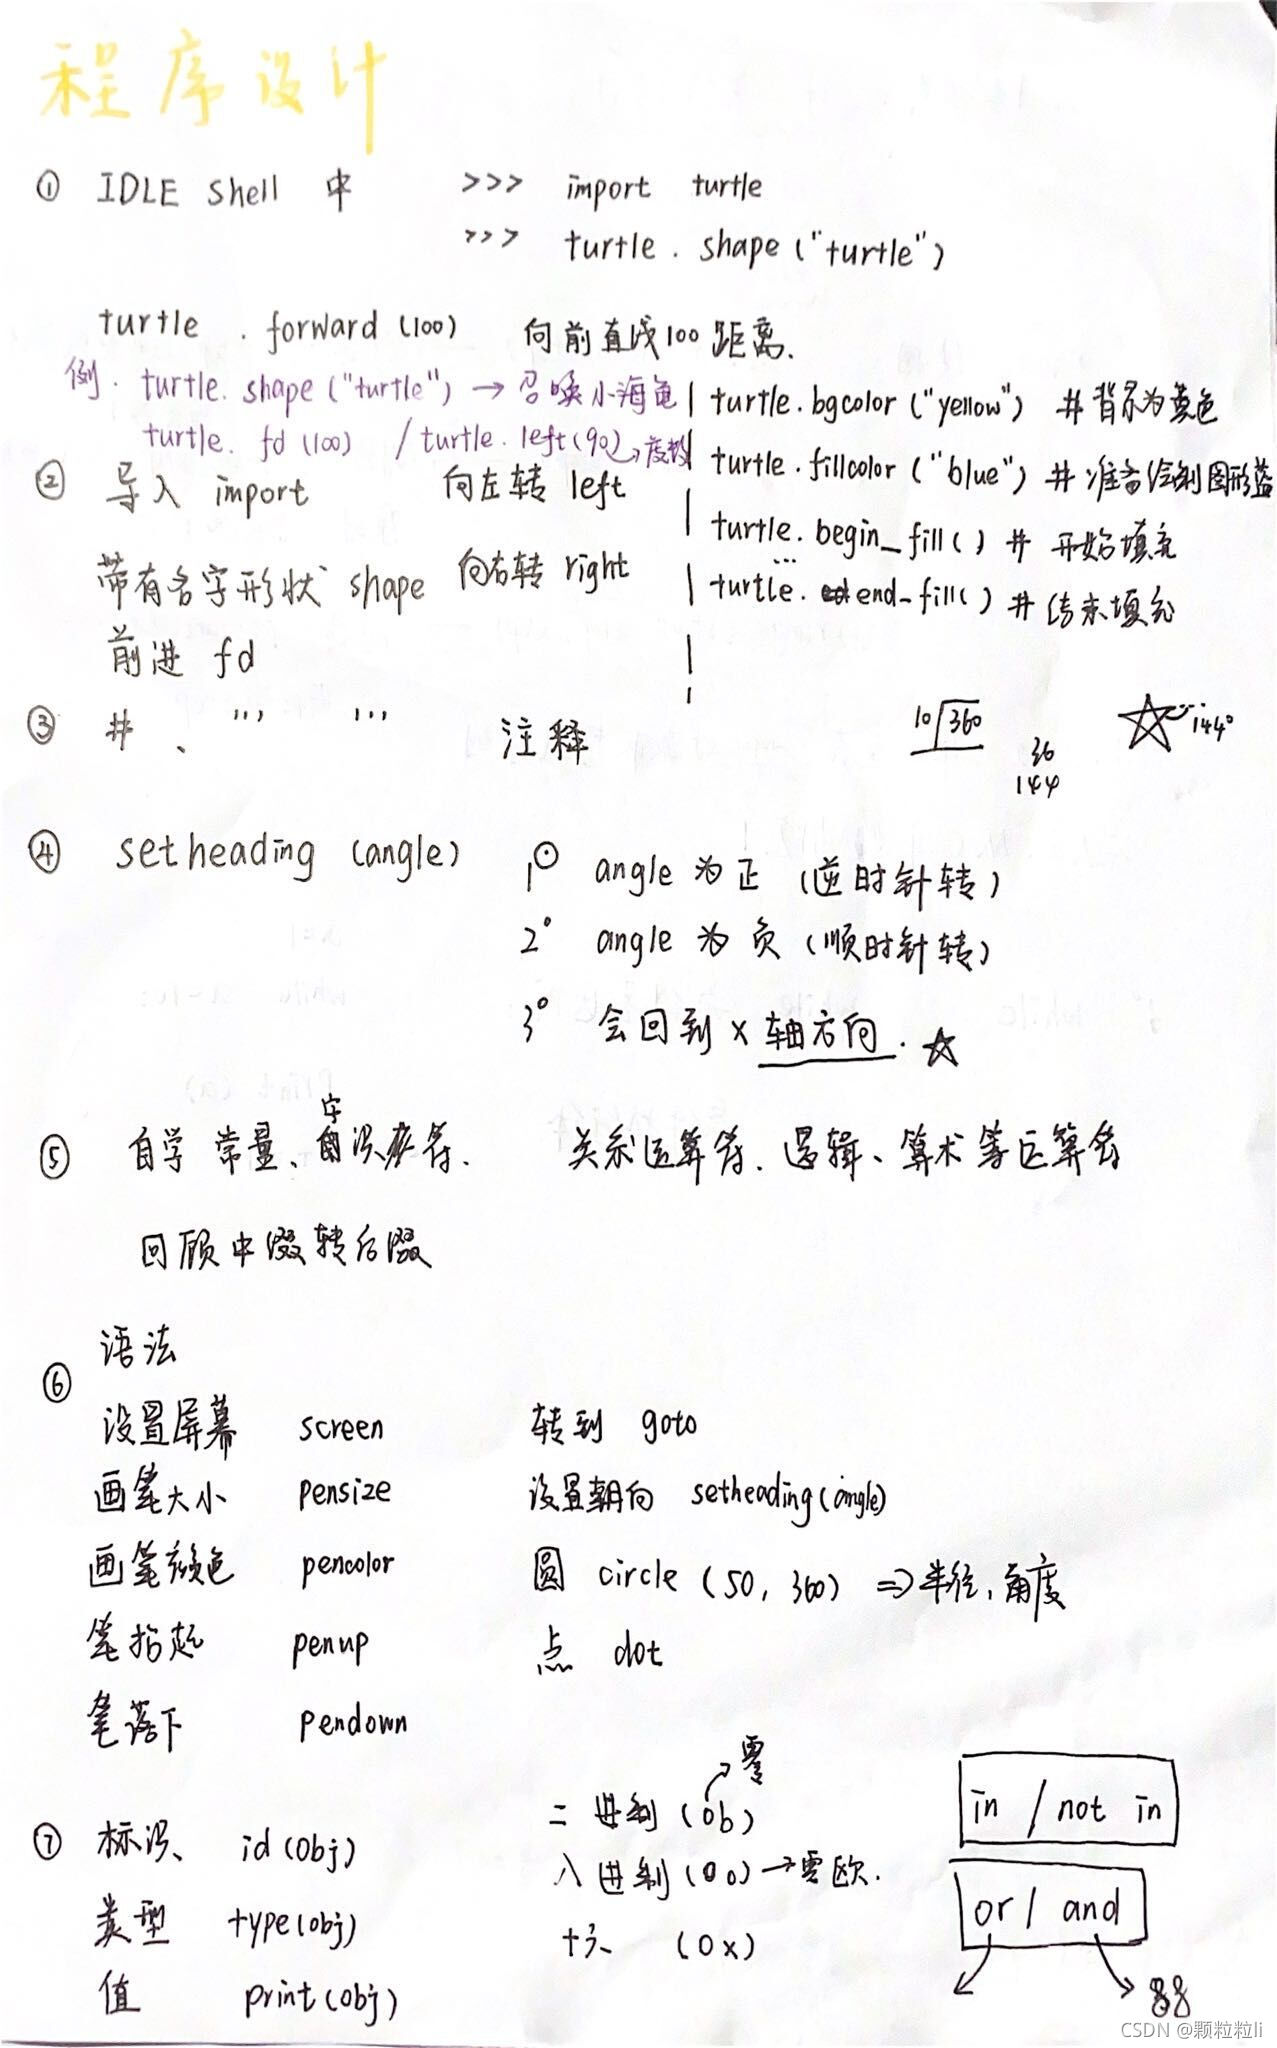 程序设计
① IDLE Shell 中 >>> import turtle
>>> turtle . shape ("turtle")
turtle . forward (100) 向前直线100距离.
例. turtle. shape ("turtle") → 召唤小海龟
turtle. fd (100) / turtle. left(90)→度数
turtle.bgcolor ("yellow") # 背景为黄色
turtle.fillcolor ("blue") # 准备绘制图形蓝
turtle.begin_fill() # 开始填充
...
turtle.end_fill() # 结束填充
② 导入 import 向左转 left
带有名字形状 shape 向右转 right
前进 fd
③ # 、 ''' ''' 注释
10 360
36
144
144°
④ setheading (angle) 1° angle 为正 (逆时针转)
2° angle 为负 (顺时针转)
3° 会回到 x 轴方向. ☆
⑤ 自学 常量、 关系运算符. 逻辑、算术等运算符
回顾中缀转后缀
⑥ 语法
设置屏幕 screen 转到 goto
画笔大小 pensize 设置朝向 setheading(angle)
画笔颜色 pencolor 圆 circle (50, 360) => 半径, 角度
笔抬起 penup 点 dot
笔落下 pendown
⑦ 标识、 id(obj) 二进制 (0b) → 零
类型 type(obj) 八进制 (0o) → 零欧.
值 print(obj) 十六 (0x)
in / not in
or / and
CSDN @颗粒粒li